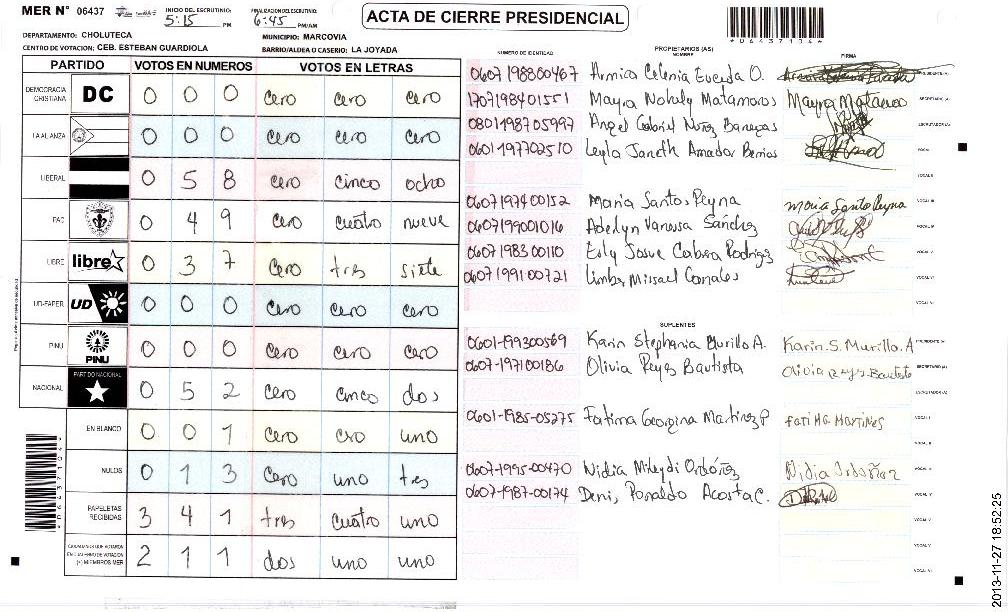 MER N° 06437
INICIO DEL ESCRUTINIO: 5:15 PM
FINALIZACION DEL ESCRUTINIO: 6:45 PM/AM
ACTA DE CIERRE PRESIDENCIAL
*06437104*
DEPARTAMENTO: CHOLUTECA
MUNICIPIO: MARCOVIA
CENTRO DE VOTACION: CEB. ESTEBAN GUARDIOLA
BARRIO/ALDEA O CASERIO: LA JOYADA
PARTIDO VOTOS EN NUMEROS VOTOS EN LETRAS
DEMOCRACIA CRISTIANA DC 0 0 0 cero cero cero
LA ALIANZA 0 0 0 cero cero cero
LIBERAL 0 5 8 cero cinco ocho
PAC 0 4 9 cero cuatro nueve
LIBRE libre 0 3 7 cero tres siete
UD-FAPER UD 0 0 0 cero cero cero
PINU PINU 0 0 0 cero cero cero
NACIONAL PARTIDO NACIONAL 0 5 2 cero cinco dos
EN BLANCO 0 0 1 cero cro uno
NULOS 0 1 3 cero uno tres
PAPELETAS RECIBIDAS 3 4 1 tres cuatro uno
CIUDADANOS QUE VOTARON EN CUADERNO DE VOTACION (+) MIEMBROS MER 2 1 1 dos uno uno
*06437104*
NUMERO DE IDENTIDAD PROPIETARIOS (AS) NOMBRE FIRMA
0607198800467 Celenia O. PRESIDENTE (A)
1707198401551 Mayra Nohely Matamoros Mayra Matamoros SECRETARIO (A)
0801198705997 Angel Gabriel Nuñez Banegas ESCRUTADOR (A)
0601197702510 Leyla Janeth Amador Berrios VOCAL I
VOCAL II
0607197400152 Maria Santos Reyna Maria Santo Reyna VOCAL III
0607199001016 Adelyn Vanessa Sánchez VOCAL IV
0607198300110 Josue Cabrera Rodriguez VOCAL V
0607199100721 Misael VOCAL VI
VOCAL VII
SUPLENTES
0601-199300569 Karin Stephania Murillo A. Karin.S. Murillo.A PRESIDENTE (A)
0607-197100186 Olivia Reyes Bautista Olivia Reyes Bautista SECRETARIO (A)
ESCRUTADOR (A)
0601-1985-05275 Fatima Georgina Martinez P FATIMA MARTINES VOCAL I
VOCAL II
0607-1995-00470 Nidia Mileydi Ordóñez Nidia Ordoñez VOCAL III
0607-1987-00174 Denis Ronaldo Acosta C. VOCAL IV
VOCAL V
VOCAL VI
VOCAL VII
2013-11-27 18:52:25